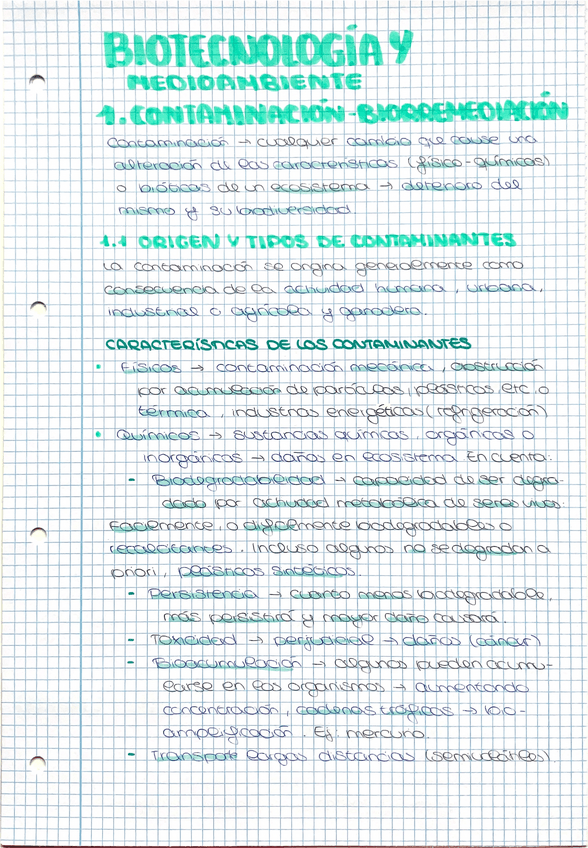 BIOTECNOLOGÍA Y
MEDIOAMBIENTE
1. CONTAMINACIÓN-BIORREMEDIACIÓN
Contaminación → cualquier cambio que cause una
alteración de las características (físico-químicas)
o bióticas de un ecosistema → deterioro del
mismo y su biodiversidad.
1.1 ORIGEN Y TIPOS DE CONTAMINANTES
La contaminación se origina generalmente como
consecuencia de la actividad humana, urbana,
industrial o agrícola y ganadera.
CARACTERÍSTICAS DE LOS CONTAMINANTES
• Físicos → contaminación mecánica, obstrucción
por acumulación de partículas, plásticos, etc, o
térmica, industrias energéticas (refrigeración)
• Químicos → sustancias químicas, orgánicas o
inorgánicas → daños en ecosistema. En cuenta:
- Biodegradabilidad → capacidad de ser degra-
dado por actividad metabólica de seres vivos:
Fácilmente, o difícilmente biodegradables o
recalcitantes. Incluso algunos no se degradan a
priori, plásticos sintéticos.
- Persistencia → cuanto menos biodegradable,
más persistirá y mayor daño causará.
- Toxicidad → perjudicial → daños (cáncer)
- Bioacumulación → algunos pueden acumu-
larse en los organismos → aumentando
concentración, cadenas tróficas → bio-
amplificación. Ej: mercurio.
- Transporte largas distancias (semivolátiles).